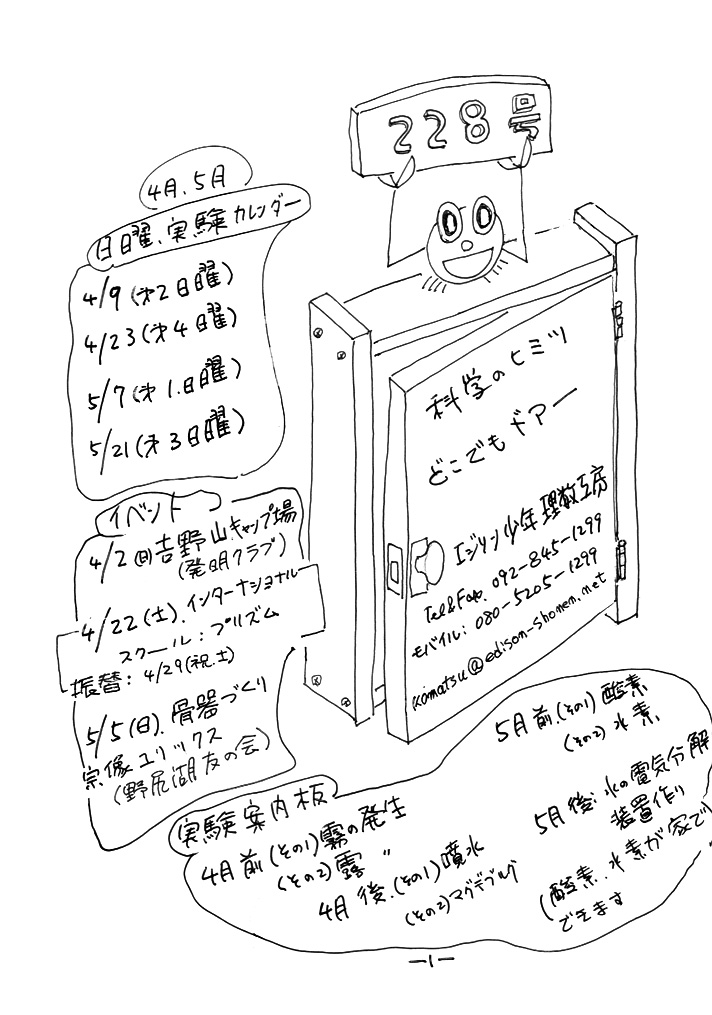 228号
4月、5月
日曜、実験カレンダー
4/9(第2日曜)
4/23(第4日曜)
5/7(第1.日曜)
5/21(第3日曜)
イベント
4/2(日)吉野山キャンプ場
(発明クラブ)
4/22(土).インターナショナル
スクール:プリズム
振替:4/29(祝.土)
5/5(日).骨器づくり
宗像ユリックス
(野尻湖友の会)
科学のヒミツ
どこでもドアー
エジソン少年理数工房
Tel&Fax.092-845-1299
モバイル:080-5205-1299
komatsu@edison-shonen.net
実験案内板
4月前(その1)霧の発生
(その2)露 〃
4月後.(その1)噴水
(その2)マグデブルグ
5月前(その1)酸素
(その2)水素
5月後:水の電気分解
装置作り
(酸素..水素が家で
できます
-1-